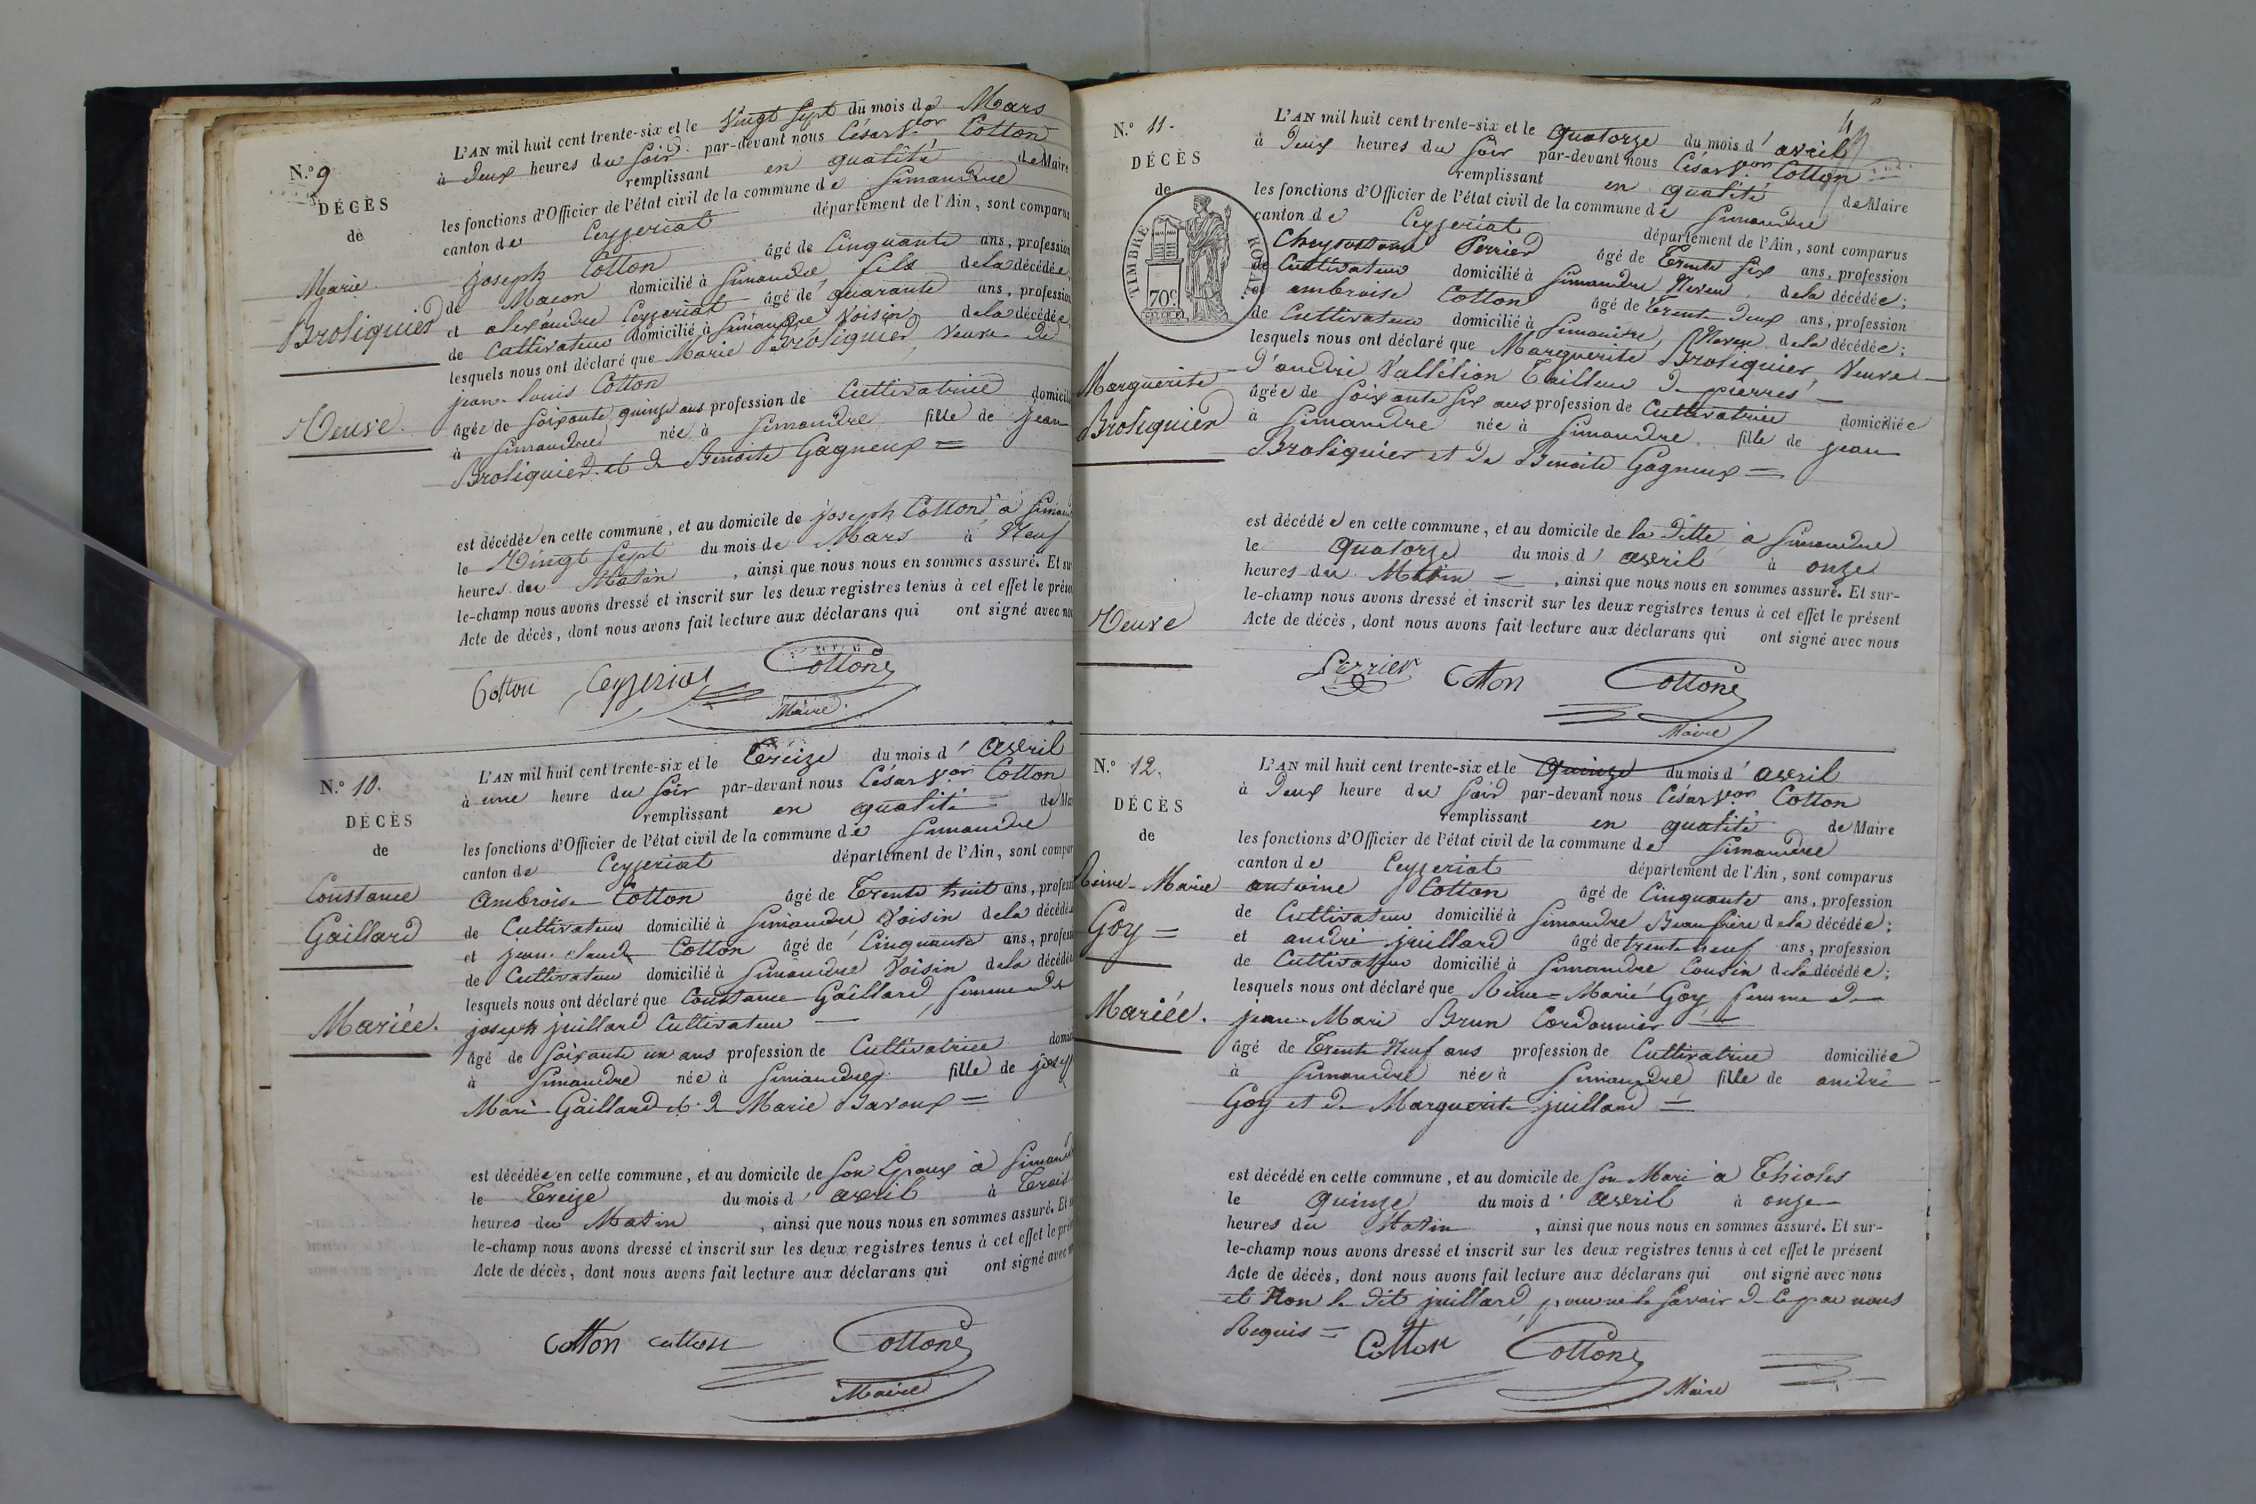 N.o 9
DÉCÈS
de
Marie
Broliquier
Veuve.
L'AN mil huit cent trente-six et le Vingt Sept du mois de Mars
à deux heures du Soir par-devant nous César V.or Cotton
remplissant en qualité de Maire
les fonctions d'Officier de l'état civil de la commune de Simandre
canton de Ceyzeriat département de l'Ain, sont comparus
Joseph Cotton âgé de Cinquante ans, profession
de Maçon domicilié à Simandre fils de la décédée;
et alexandre Ceyzeriat âgé de quarante ans, profession
de Cultivateur domicilié à Simandre Voisin de la décédée
lesquels nous ont déclaré que Marie Broliquier, Veuve de
jean-louis Cotton
âgée de Soixante quinze ans profession de Cultivatrice domicilié
à Simandre née à Simandre fille de Jean
Broliquier et de Benoite Gagneux =
est décédée en cette commune, et au domicile de Joseph Cotton à Simand
le Vingt Sept du mois de Mars à Neuf
heures du Matin, ainsi que nous nous en sommes assuré. Et su
le-champ nous avons dressé et inscrit sur les deux registres tenus à cet effet le prése
Acte de décès, dont nous avons fait lecture aux déclarans qui ont signé avec no
Cotton Ceyzeriat Cotton
Maire
N.o 10.
DÉCÈS
de
Constance
Gaillard
Mariée.
L'AN mil huit cent trente-six et le Treize du mois d'avril
à une heure du Soir par-devant nous César V.or Cotton
remplissant en qualité de Ma
les fonctions d'Officier de l'état civil de la commune de Simandre
canton de Ceyzeriat département de l'Ain, sont compar
Ambroise Cotton âgé de Trente huit ans, profess
de Cultivateur domicilié à Simandre Voisin de la décédé
et jean-claude Cotton âgé de Cinquante ans, profess
de Cultivateur domicilié à Simandre Voisin de la décédé
lesquels nous ont déclaré que Constance Gaillard femme de
joseph juillard Cultivateur
âgé de Soixante un ans profession de Cultivatrice domic
à Simandre née à Simandre fille de joseph
Marie Gaillard et de Marie Bavoux =
est décédée en cette commune, et au domicile de Son Epoux à Simand
le Treize du mois d'avril à Trois
heures du Matin, ainsi que nous nous en sommes assuré. Et s
le-champ nous avons dressé et inscrit sur les deux registres tenus à cet effet le pré
Acte de décès, dont nous avons fait lecture aux déclarans qui ont signé avec n
Cotton cotton Cotton
Maire
N.o 11.
DÉCÈS
de
TIMBRE ROYAL
70c
Marguerite
Broliquier
Veuve
L'AN mil huit cent trente-six et le quatorze du mois d'avril
à Deux heures du Soir par-devant nous César V.or Cotton
remplissant en qualité de Maire
les fonctions d'Officier de l'état civil de la commune de Simandre
canton de Ceyzeriat département de l'Ain, sont comparus
Chrysostome Perrier âgé de Trente Six ans, profession
de Cultivateur domicilié à Simandre Neveu de la décédée;
et ambroise Cotton âgé de Trente Deux ans, profession
de Cultivateur domicilié à Simandre, Neveu de la décédée;
lesquels nous ont déclaré que Marguerite Broliquier, Veuve
d'andré Vallélion Tailleur de pierres
âgée de Soixante Six ans profession de Cultivatrice domiciliée
à Simandre née à Simandre fille de jean
Broliquier et de Benoite Gagneux =
est décédée en cette commune, et au domicile de la Ditte à Simandre
le quatorze du mois d'avril à onze
heures du Matin =, ainsi que nous nous en sommes assuré. Et sur-
le-champ nous avons dressé et inscrit sur les deux registres tenus à cet effet le présent
Acte de décès, dont nous avons fait lecture aux déclarans qui ont signé avec nous
Perrier Cotton Cotton
Maire
N.o 12.
DÉCÈS
de
Reine-Marie
Goy =
Mariée.
L'AN mil huit cent trente-six et le quinze du mois d'avril
à Deux heure du Soir par-devant nous César V.or Cotton
remplissant en qualité de Maire
les fonctions d'Officier de l'état civil de la commune de Simandre
canton de Ceyzeriat département de l'Ain, sont comparus
antoine Cotton âgé de Cinquante ans, profession
de Cultivateur domicilié à Simandre Beau frère de la décédée;
et andré juillard âgé de trente neuf ans, profession
de Cultivateur domicilié à Simandre Cousin de la décédée;
lesquels nous ont déclaré que Reine-Marie Goy femme de
jean-Marie Brun Cordonnier =
âgé de Trente Neuf ans profession de Cultivatrice domiciliée
à Simandre née à Simandre fille de andré
Goy et de Marguerite juillard =
est décédé en cette commune, et au domicile de Son Mari à Thioles
le quinze du mois d'avril à onze
heures du Matin, ainsi que nous nous en sommes assuré. Et sur-
le-champ nous avons dressé et inscrit sur les deux registres tenus à cet effet le présent
Acte de décès, dont nous avons fait lecture aux déclarans qui ont signé avec nous
et Non le dit juillard, pour ne le Savoir de ce par nous
Requis = Cotton Cotton
Maire